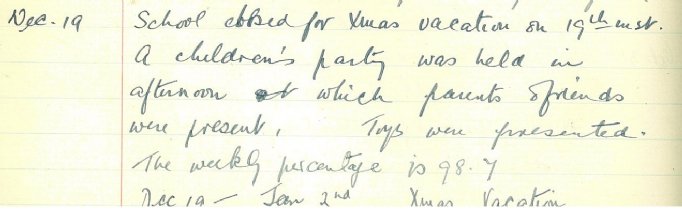 Dec. 19 School closed for Xmas vacation on 19th inst.
A children's party was held in
afternoon at which parents & friends
were present. Toys were presented.
The weekly percentage is 98.7
Dec 19 – Jan 2nd Xmas Vacation